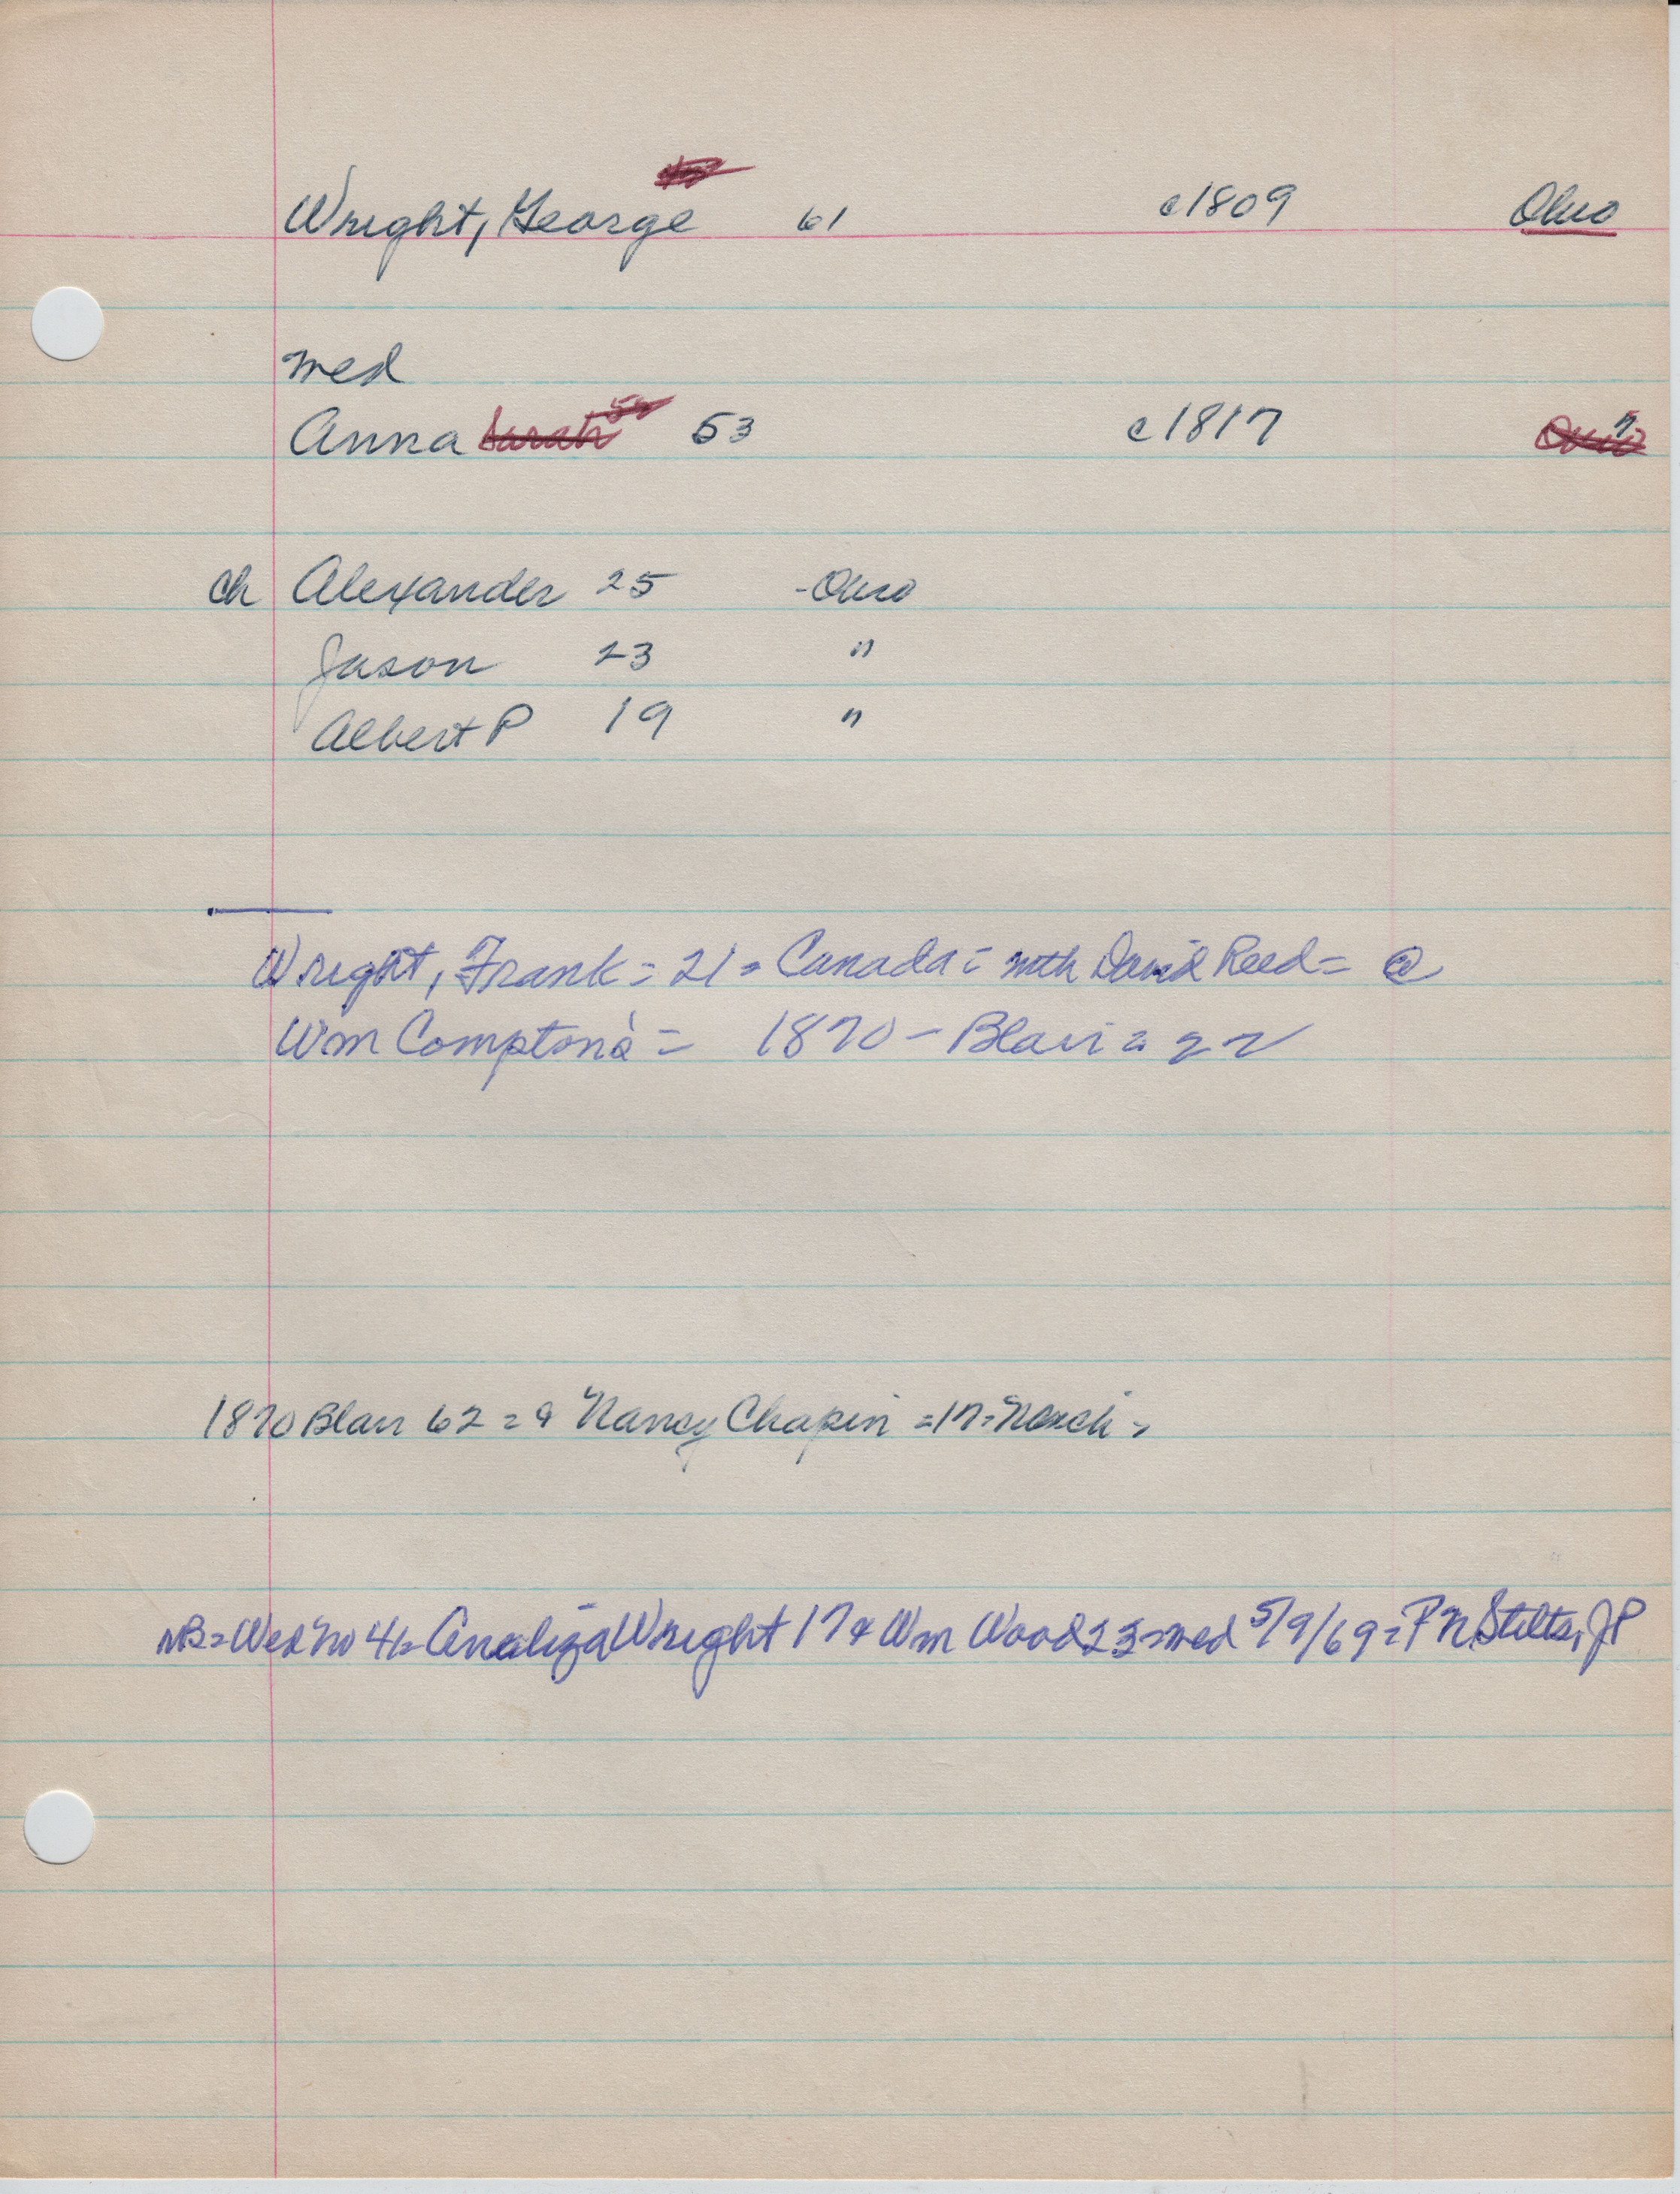 Wright, George 61 c1809 Ohio
med
Anna Sarah 52 53 c1817 Ohio "
ch Alexander 25 - Ohio
Jason 23 "
Albert P 19 "
Wright, Frank = 21 = Canada = with David Reed = @
Wm Compton's = 1870 - Blair = 22
1870 Blair 62 = & Nancy Chapin = 17 = Mich =
NB = Wed No 41 = Analiza Wright 17 & Wm Wood 23 = med 5/9/69 = P N Stilts, JP